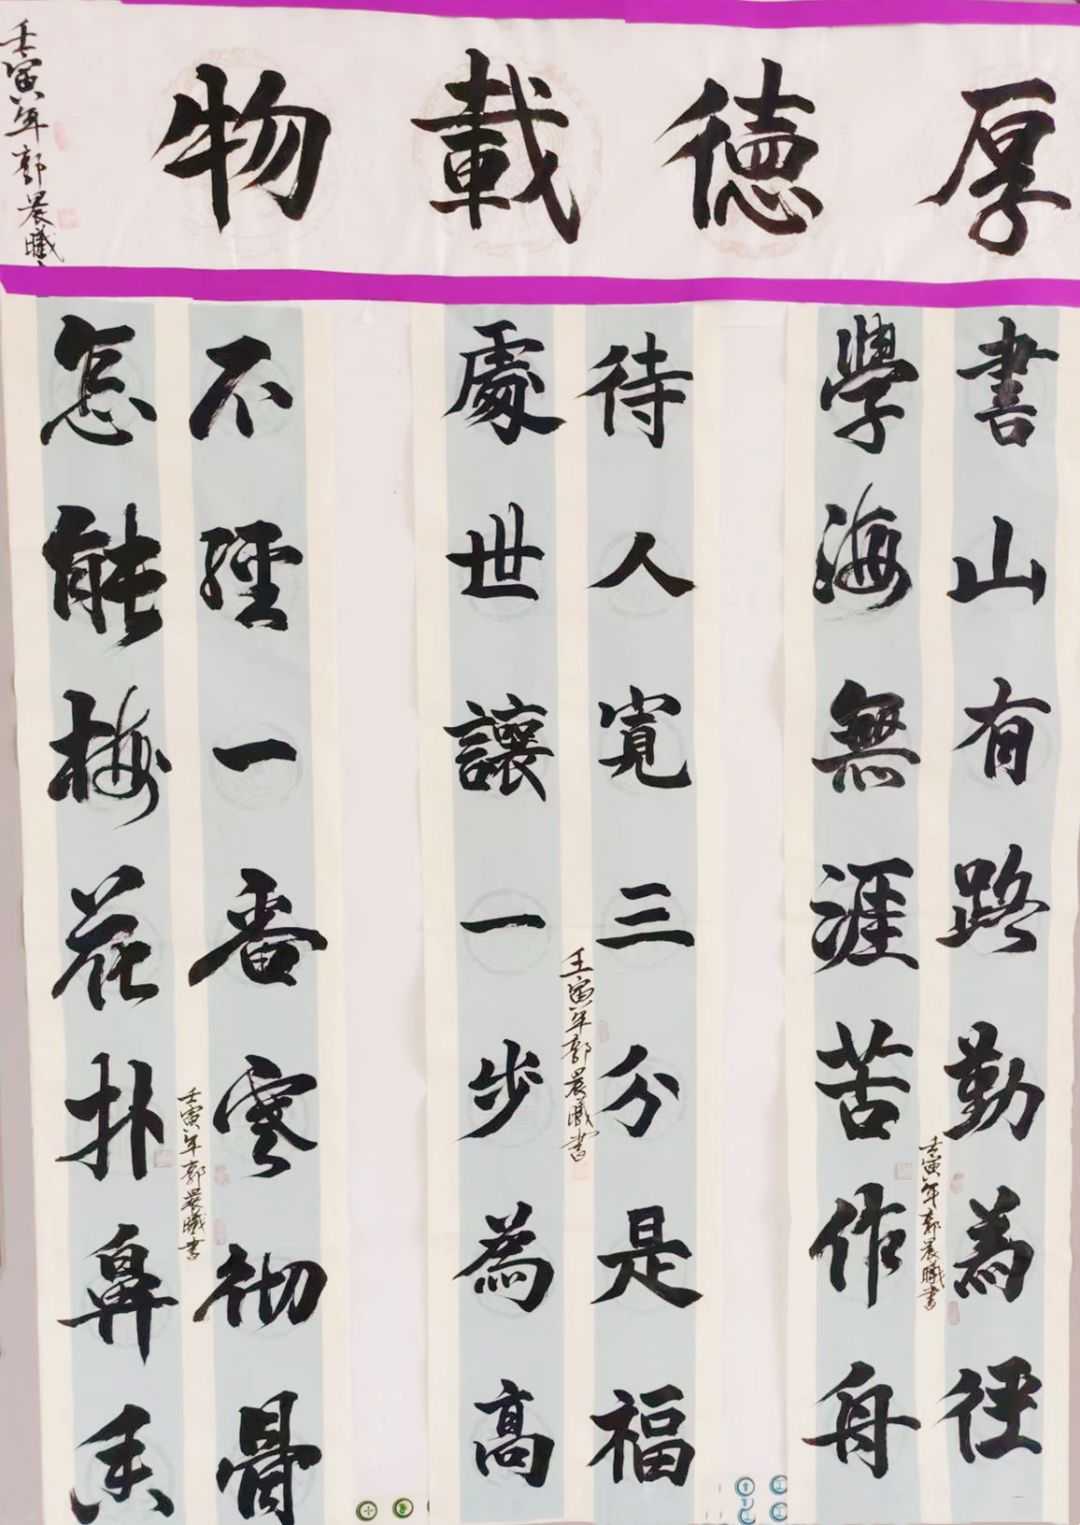 厚德載物
壬寅年郭晨曦
書山有路勤為徑
學海無涯苦作舟
壬寅年郭晨曦書
待人寬三分是福
處世讓一步為高
壬寅年郭晨曦書
不經一番寒彻骨
怎能梅花扑鼻香
壬寅年郭晨曦書